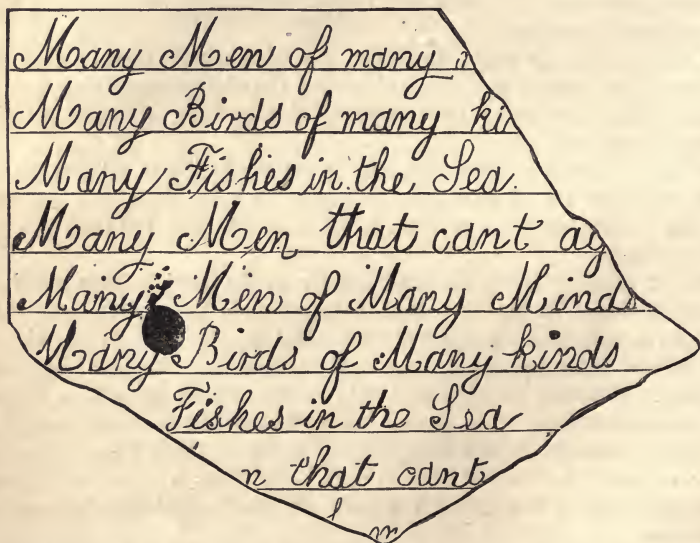 Many Men of many
Many Birds of many kin
Many Fishes in the Sea.
Many Men that cant ag
Many Men of Many Minds
Many Birds of Many kinds
Fishes in the Sea
n that cant
f m